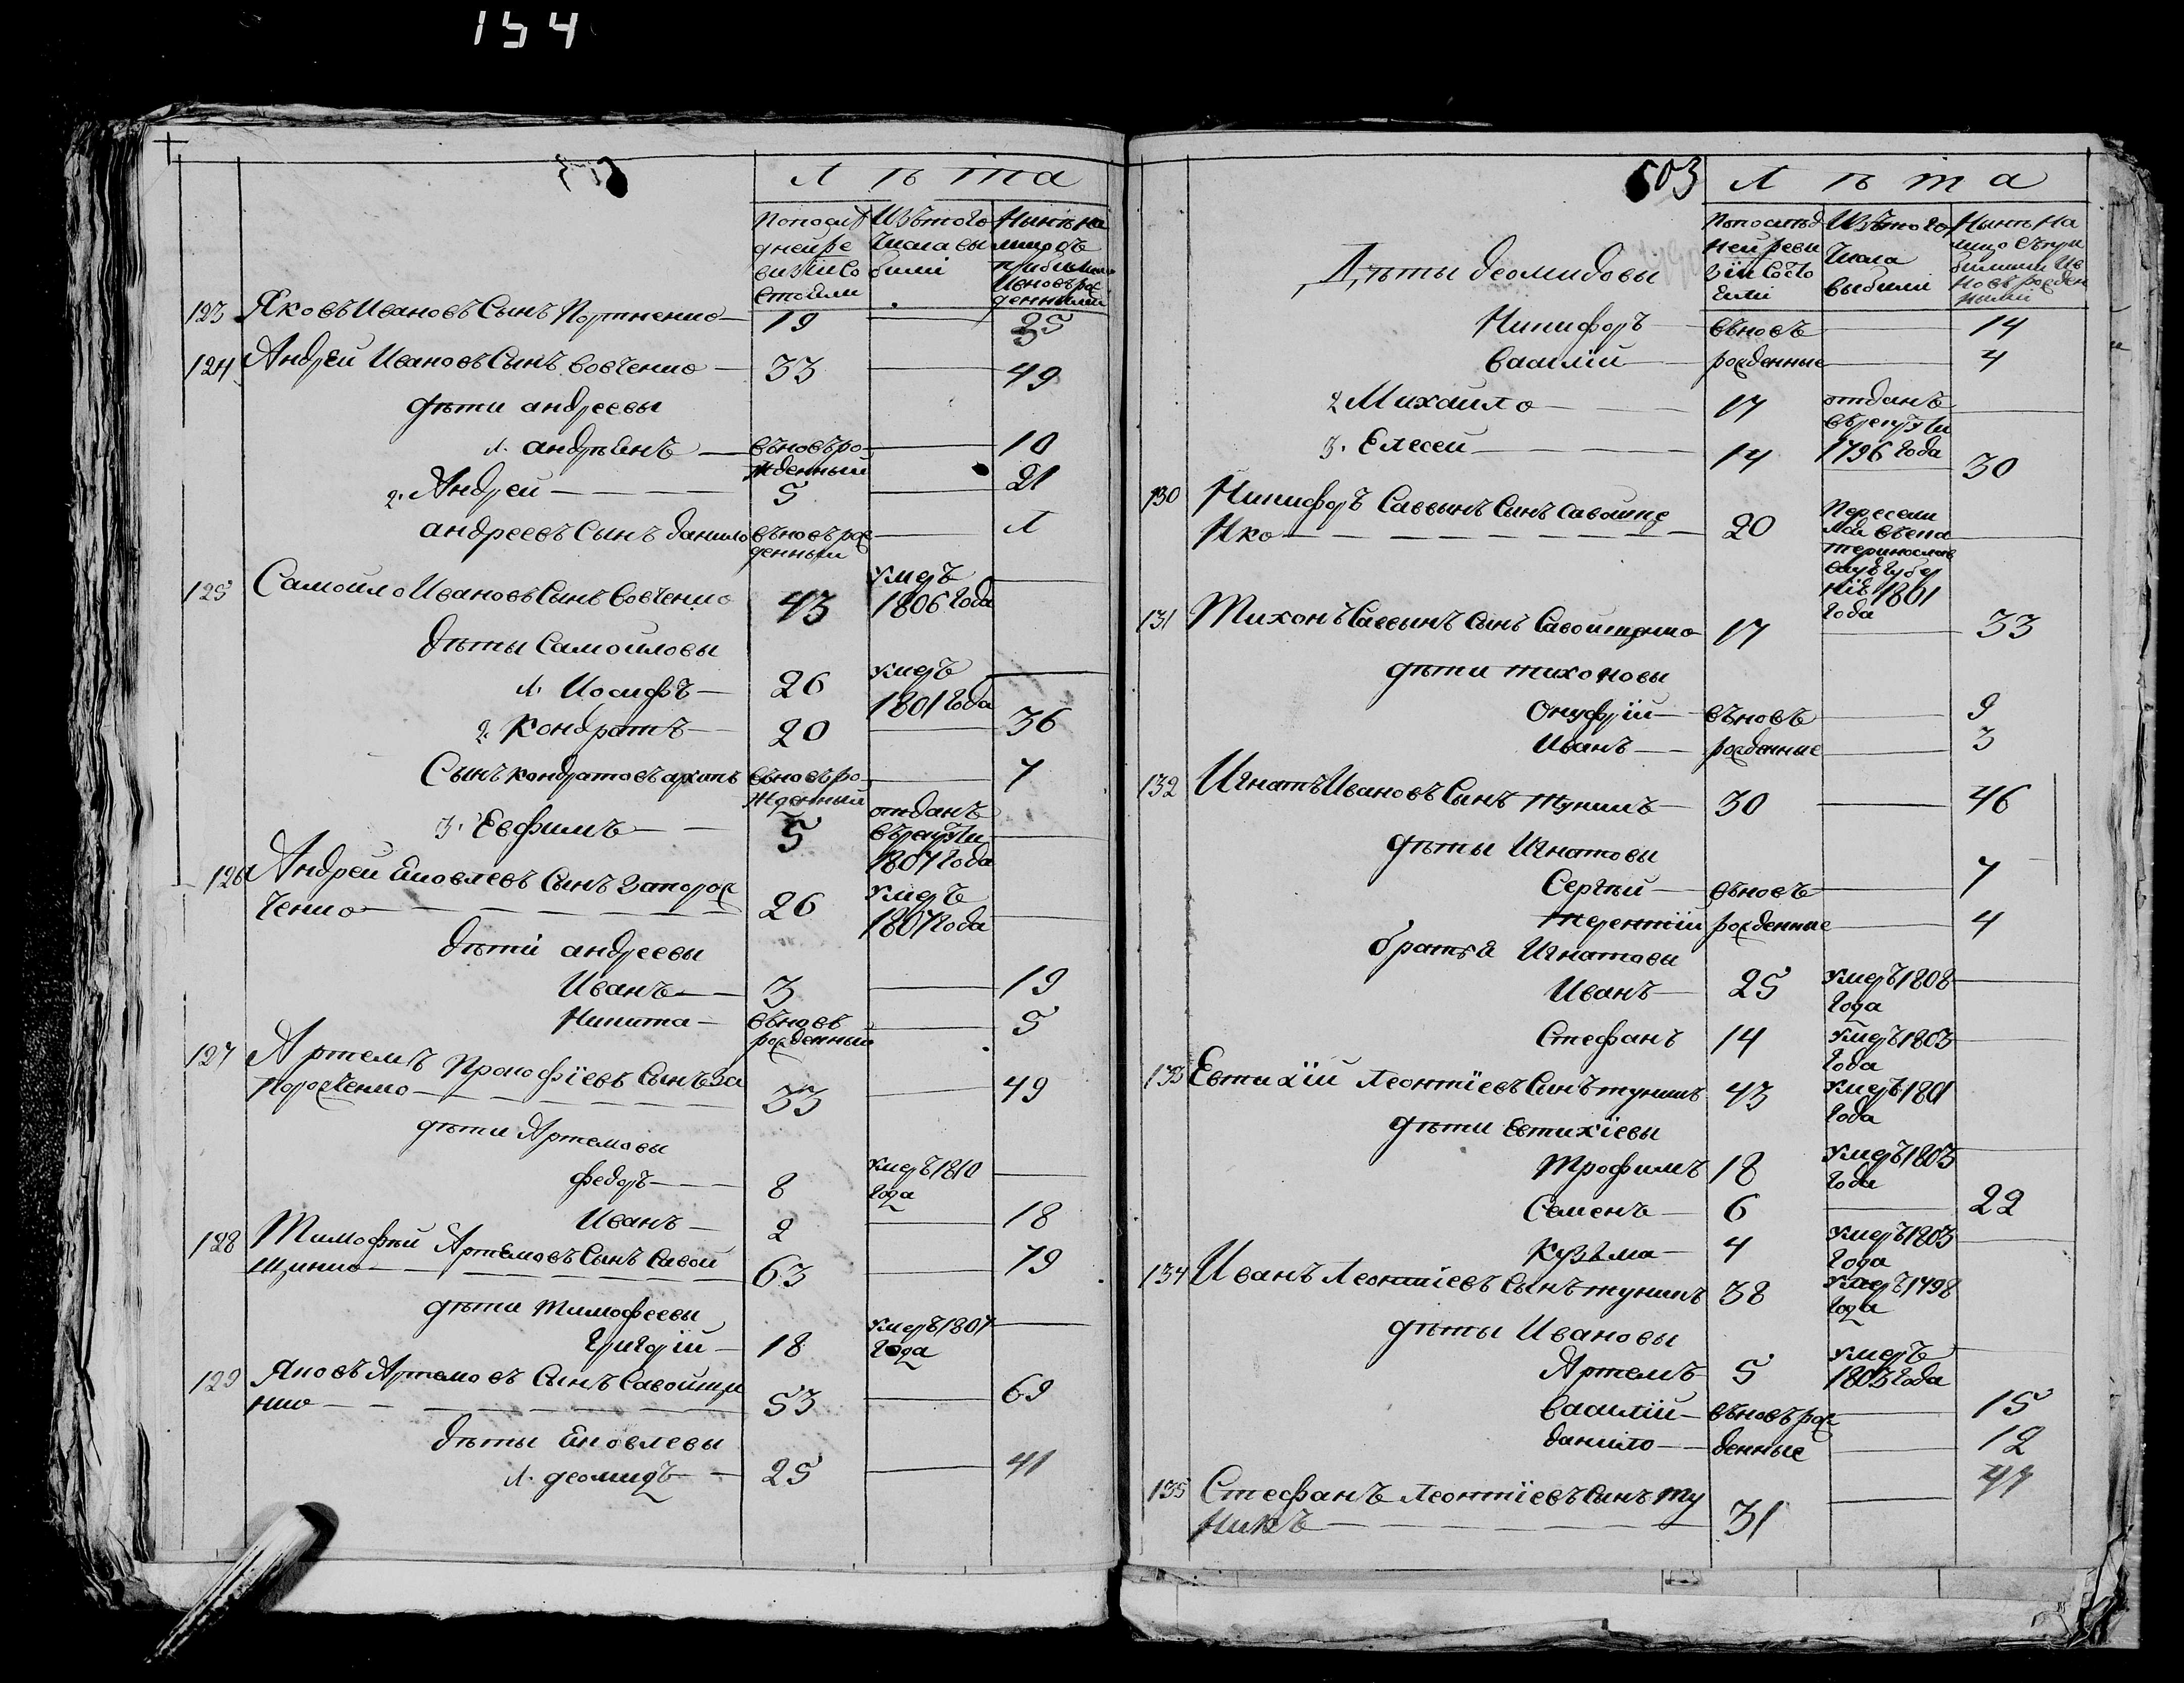 154
Лѣта
Попослѣ Изътого Нынѣна
днейре числавы лицосъ
визіисо были прибылыми
стояли ивновърож
денными
123 Яковъ Ивановъ Сынъ Портненко — 19 — 35
124 Андрей Ивановъ Сынъ вовченко — 33 — 49
дѣти андреевы
1. андрѣянъ — вновьро — 10
жденный
2. Андрей — 5 — 21
андреевъ Сынъ данило вновьрож — 1
денный
125 Самойло Ивановъ Сынъ Вовченко 43 умеръ 1806 года —
дѣты Самойловы
1. Иосифъ — 26 умеръ 1801 года —
2. Кондратъ — 20 — 36
Сынъ кондратовъ архипъ вновьро — 7
жденный
3. Евфимъ — 5 отданъ
вѣрекруты
1807 года —
126 Андрей Яковлевъ Сынъ Запорож
ченко — 26 умеръ 1807 года —
дѣти андреевы
Иванъ — 3 — 19
Никита — вновь — 5
рожденный
127 Артемъ Прокофіевъ Сынъ За
порожченко — 33 — 49
дѣти Артемовы
федоръ — 8 умеръ 1810 года —
Иванъ — 2 — 18
128 Тимофѣй Артемовъ Сынъ Савой
щенко — 63 — 79
дѣти Тимофеевы
Григорій — 18 умеръ 1807 года —
129 Яковъ Артемовъ Сынъ Савойще
нко — 53 — 69
дѣты Яковлевы
1. деомидъ — 25 — 41
603 Лѣта
Попослѣд Изътого Нынѣ На
ней реви числа лицо съпри
зіи Состо выбыли былыми Ив
яли новь рожден
ными
Дѣты деомидовы
Никифоръ — вновь — 14
василій — рожденные — 4
2 Михайло — 17 отданъ
вѣрекруты
1796 года —
3. Елесей — 14 — 30
130 Никифоръ Саввынъ Сынъ Савойще
нко — 20 Пересели
лся вѣека
теринослав
скую губер
нію 1801
года —
131 Тихонъ Саввынъ Сынъ Савойщенко 17 — 33
дѣти тихоновы
Онуфрій — вновь — 9
Иванъ — рожденные — 3
132 Игнатъ Ивановъ Сынъ тупикъ — 30 — 46
дѣты Игнатовы
Сергѣй — вновь — 7
терентій рожденные — 4
братья Игнатовы
Иванъ — 25 умеръ 1808 года —
Стефанъ 14 умеръ 1803 года —
133 Евтихій Леонтіевъ Сынъ тупикъ 43 умеръ 1801 года
дѣти Евтихіевы
Трофимъ 18 умеръ 1803 года —
Семенъ — 6 — 22
Кузьма — 4 умеръ 1803 года —
134 Иванъ Леонтіевъ Сынъ тупикъ 38 умеръ 1798 года
дѣты Ивановы
Артемъ 5 умеръ 1803 года —
василій — вновь рож — 15
данило — денные — 12
135 Стефанъ Леонтіевъ Сынъ ту
пикъ — 31 — 47